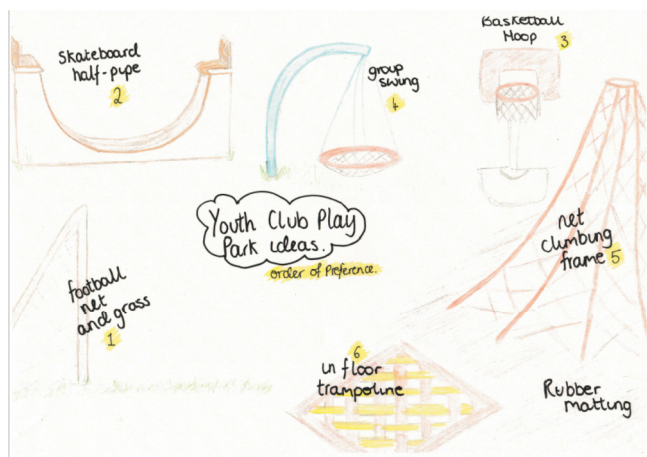 Skateboard
half-pype
2
group
swing
4
Basketball
Hoop
3
Youth Club Play
Park ideas.
order of Preference.
football
net
and grass
1
net
climbing
frame 5
6
in floor
trampoline
Rubber
matting